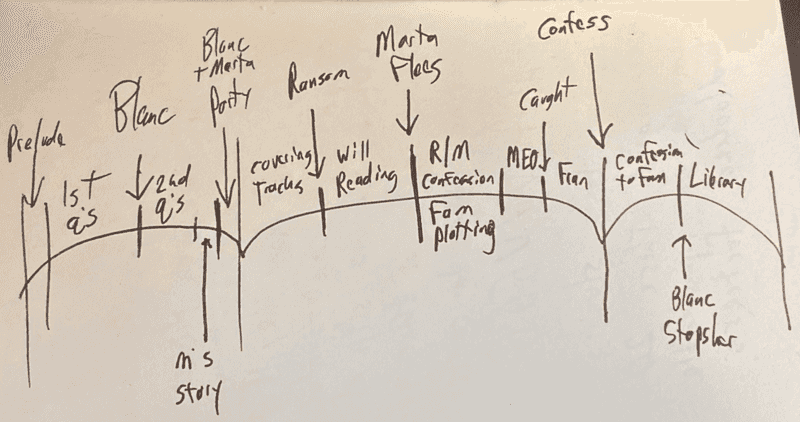 Prelude
1st
q's
Blanc
2nd
q's
m's
story
Blanc
+ Marta
Party
covering
Tracks
Ransom
Will
Reading
Marta
Flees
R/M
Confession
Fam
plotting
MEO
Caught
Fran
Confess
confession
to Fam
Library
Blanc
Stops her